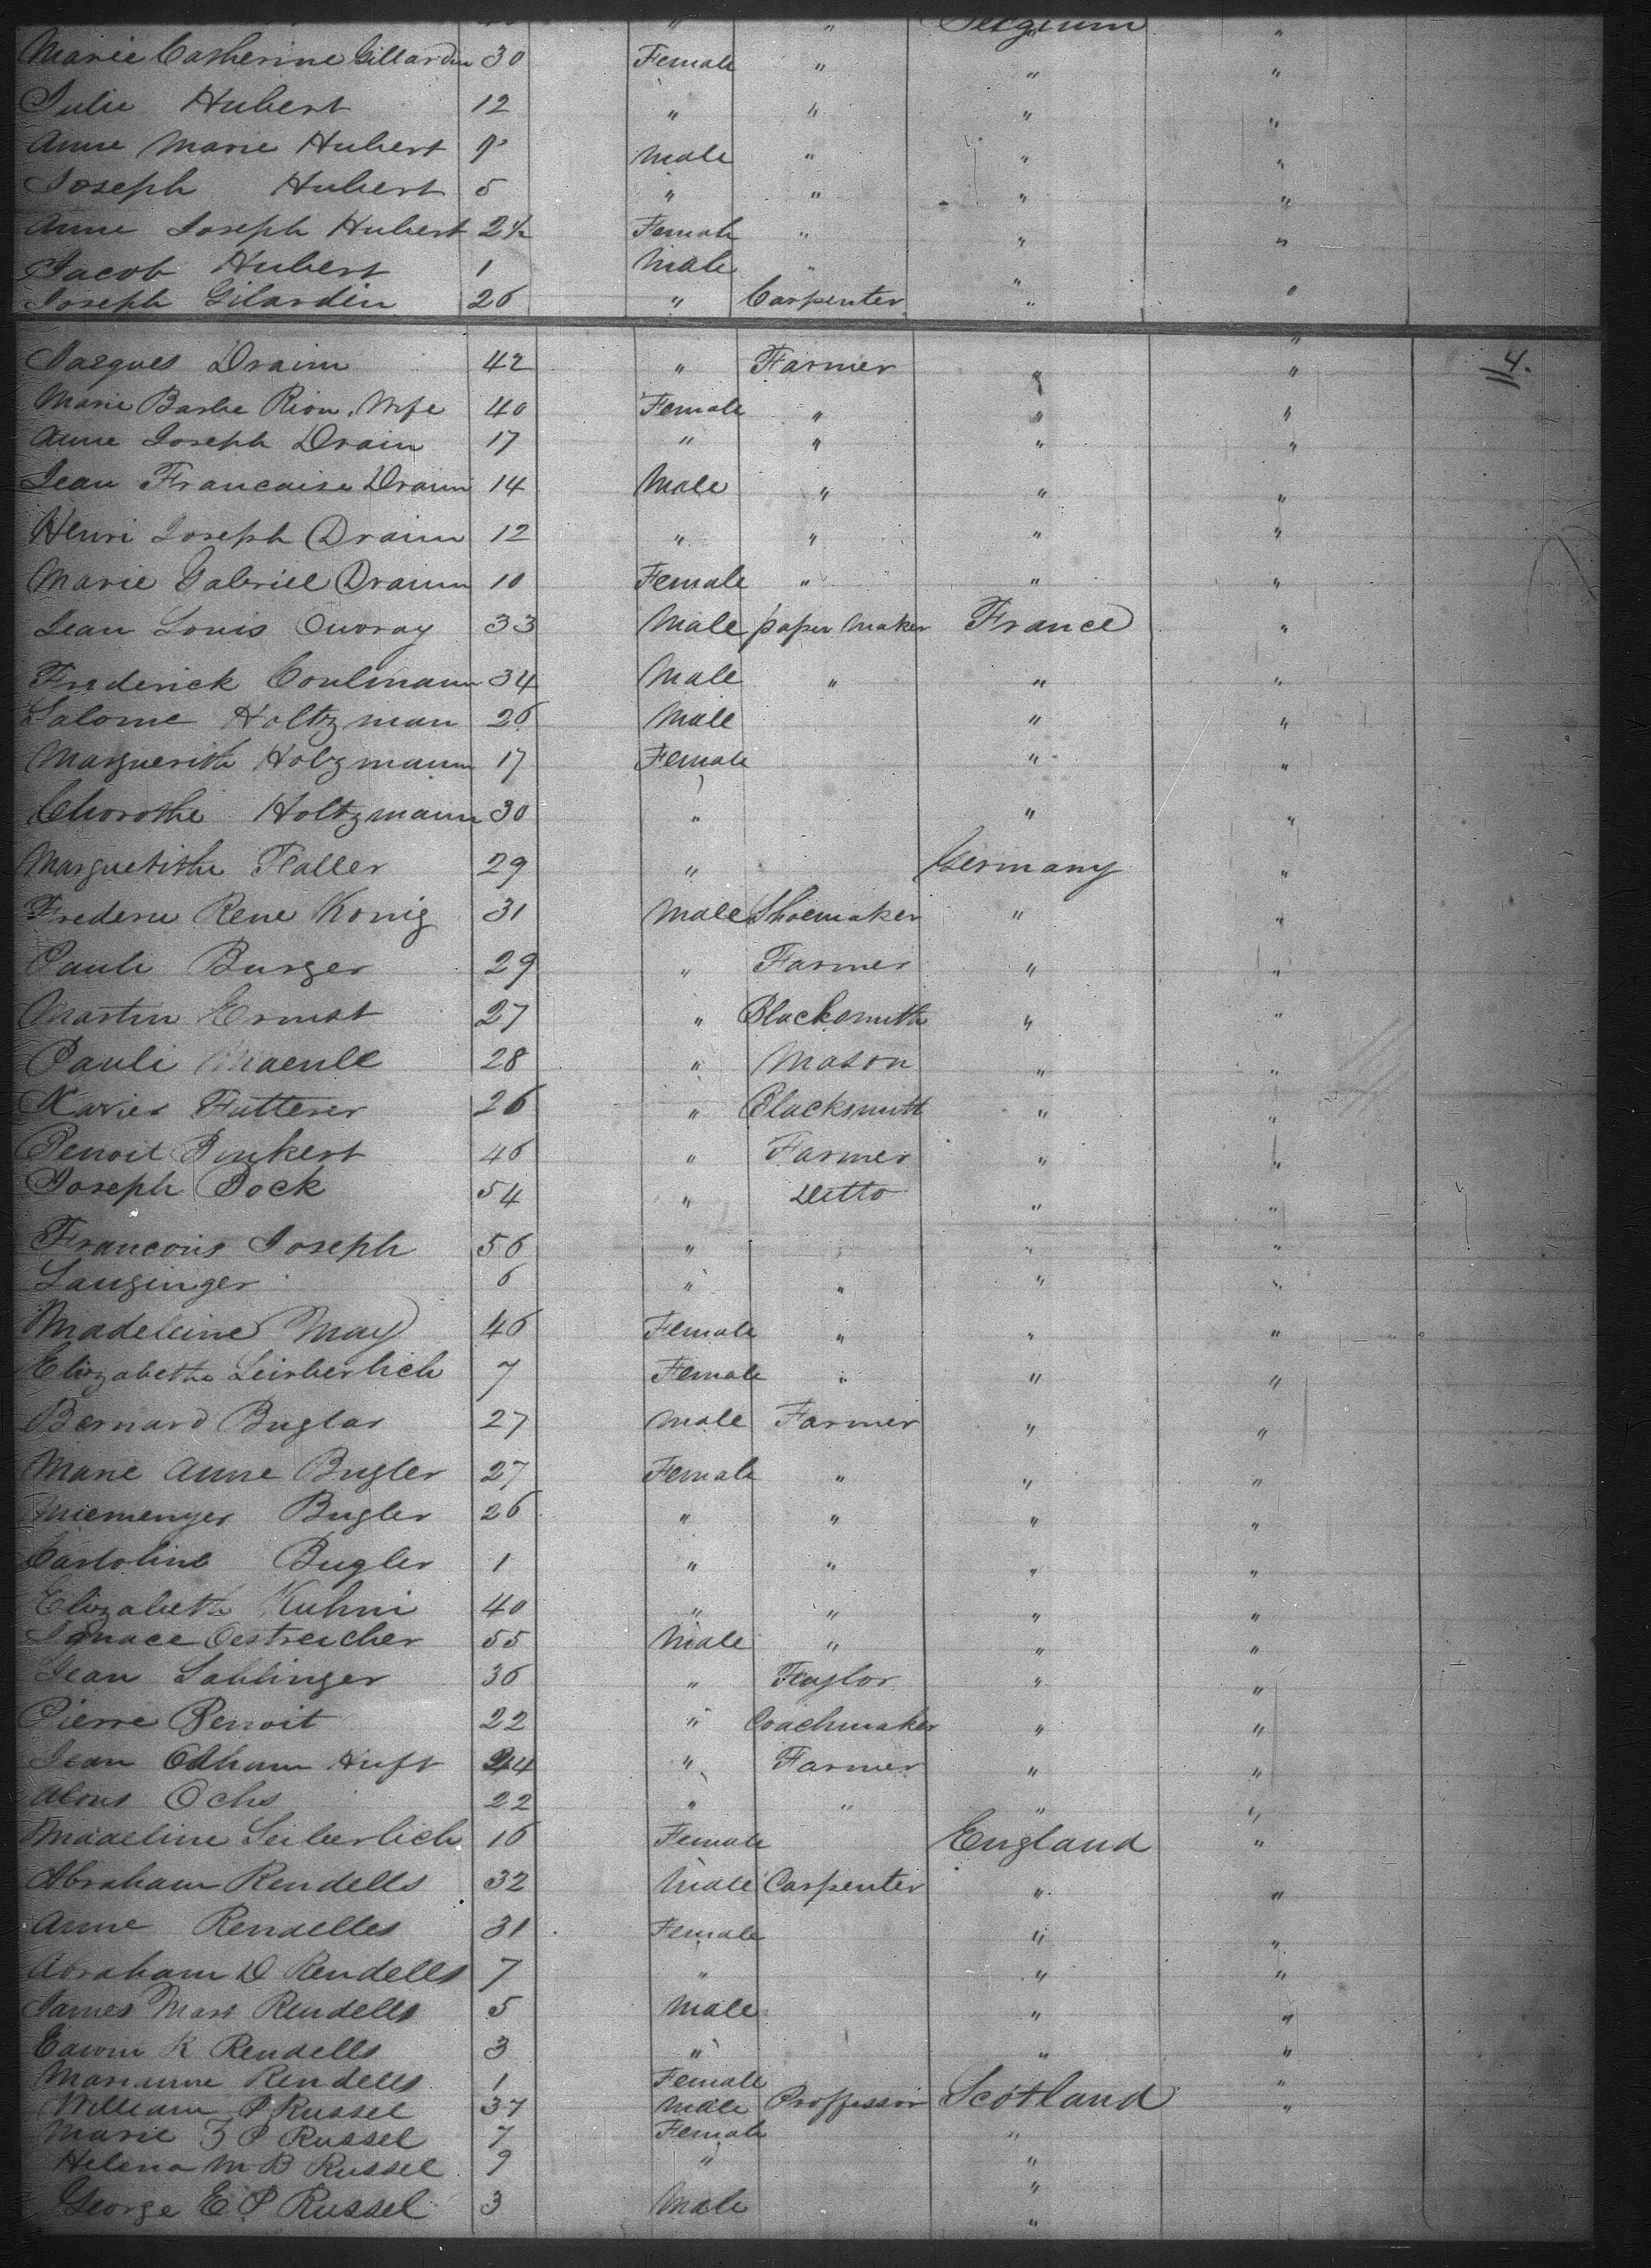 " " Belgium "
Marie Catherine Gillardin 30 Female " " "
Julie Hubert 12 " " " "
Anne Marie Hubert 9 Male " " "
Joseph Hubert 5 " " " "
Anne Joseph Hubert 2½ Female " " "
Jacob Hubert 1 Male " " "
Joseph Gilardin 26 " Carpenter " "
Jacques Draim 42 " Farmer " " 4.
Marie Barbe Rion, Wife 40 Female " " "
Anne Joseph Drain 17 " " " "
Jean Francaise Draim 14 Male " " "
Henri Joseph Draim 12 " " " "
Marie Gabriell Draim 10 Female " " "
Jean Louis Ouvray 33 Male paper maker France "
Frederick Coulmann 34 Male " " "
Salome Holtzman 26 Male " "
Marguerith Holzmann 17 Female " "
Chorothe Holtzmann 30 " " "
Marguerithe Haller 29 " Germany "
Frederic Rene Konig 31 Male Shoemaker " "
Pauli Burger 29 " Farmer " "
Martin Ernst 27 " Blacksmith " "
Pauli Maenle 28 " Mason " "
Xavier Futterer 26 " Blacksmith " "
Benoit Binkert 46 " Farmer " "
Joseph Bock 54 " Ditto " "
Francois Joseph 56 " " " "
Langinger 6 " " " "
Madeleine May 46 Female " " "
Elizabethe Leirberlich 7 Female " " "
Bernard Buglar 27 Male Farmer " "
Marie Anne Bugler 27 Female " " "
Miemenger Bugler 26 " " " "
Carloline Bugler 1 " " " "
Elizabeth Kuhni 40 " " " "
Ignace Oestreicher 55 Male " " "
Jean Sahlinger 36 " Taylor " "
Pierre Benoit 22 " Coachmaker " "
Jean Adham Huft 24 " Farmer " "
Alons Ochs 22 " " " "
Madeline Seiberlich 16 Female England "
Abraham Rendells 32 Male Carpenter " "
Anne Rendelles 31 Female " "
Abraham D Rendells 7 " " "
James Mart Rendells 5 Male " "
Edwin R Rendells 3 " " "
Marianne Rendells 1 Female "
William P Russel 37 Male Proffessor Scotland "
Marie J P Russel 7 Female "
Helena M B Russel 9 " "
George E P Russel 3 Male " "